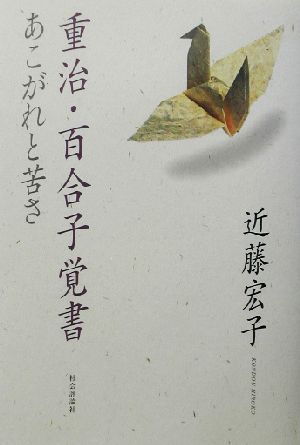 重治・百合子覚書
あこがれと苦さ
近藤宏子
KONDOH HIROKO
社会評論社